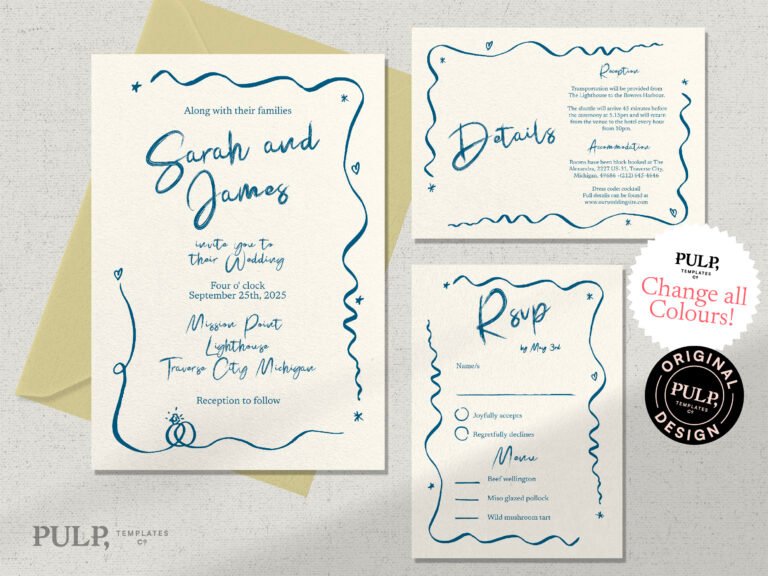 Along with their families
Sarah and
James
invite you to
their Wedding
Four o' clock
September 25th, 2025
Mission Point
Lighthouse
Traverse City Michigan
Reception to follow
Details
Reception
Transportation will be provided from
The Lighthouse to the Bowers Harbour.
The shuttle will arrive 45 minutes before
the ceremony at 5.15pm and will return
from the venue to the hotel every hour
from 10pm.
Accommodation
Rooms have been block booked at The
Alexandra, 2227 US-31, Traverse City,
Michigan. 49686 -(212) 645-4646
Dress code: cocktail
Full details can be found at
www.ourweddingsite.com
Rsvp
by May 3rd
Name/s
Joyfully accepts
Regretfully declines
Menu
Beef wellington
Miso glazed pollock
Wild mushroom tart
PULP,
TEMPLATES
Cº
Change all
Colours!
ORIGINAL
PULP,
TEMPLATES
Cº
DESIGN
PULP, TEMPLATES
Cº